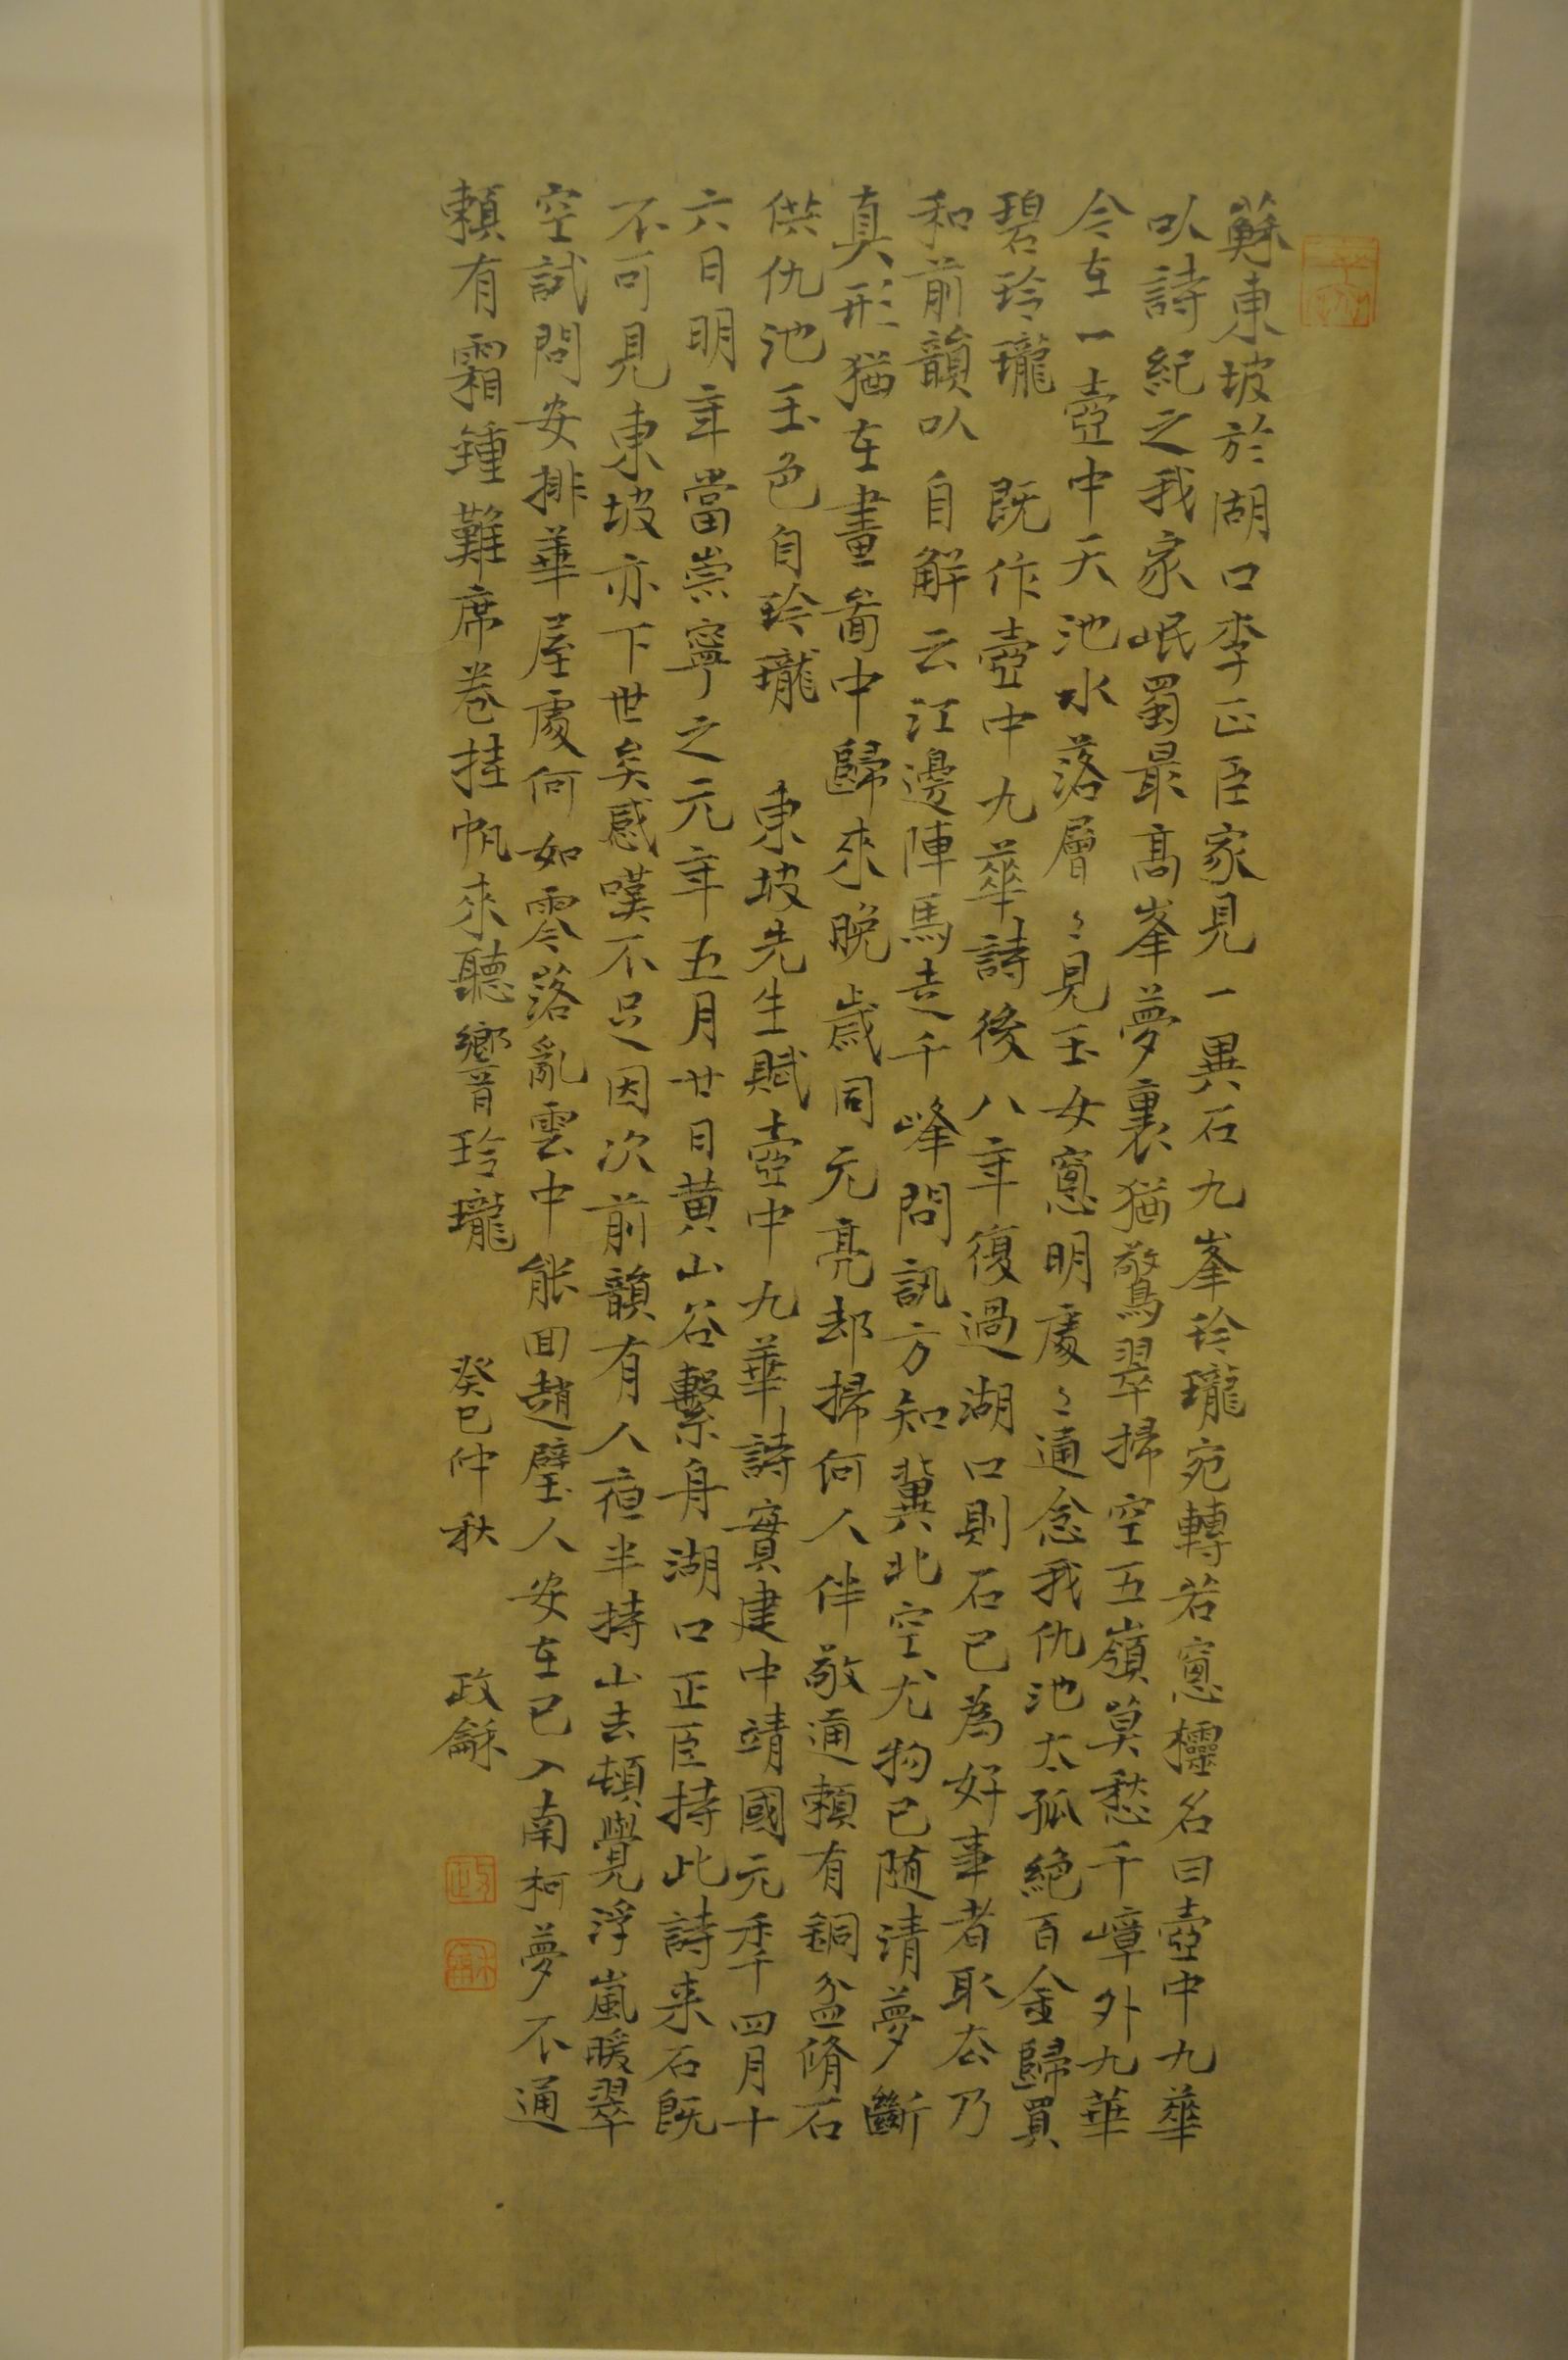 蘇東坡於湖口李正臣家見一異石九峯玲瓏宛轉若窻櫺名曰壺中九華
以詩紀之我家岷蜀最高峯夢裏猶驚翠掃空五嶺莫愁千嶂外九華
今在一壺中天池水落層〻見玉女窻明處〻通念我仇池太孤絕百金歸買
碧玲瓏 既作壺中九華詩後八年復過湖口則石已為好事者取去乃
和前韻以自解云江邊陣馬走千峰問訊方知冀北空尤物已随清夢斷
真形猶在畫啚中歸來晚歲同元亮却掃何人伴敬通賴有銅盆脩石
供仇池玉色自玲瓏 東坡先生賦壺中九華詩實建中靖國元秊四月十
六日明年當崇寧之元年五月廿日黃山谷繫舟湖口正臣持此詩来石既
不可見東坡亦下世矣感嘆不足因次前韻有人夜半持山去頓覺浮嵐暖翠
空試問安排華屋處何如零落亂雲中能回趙璧人安在已入南柯夢不通
賴有霜鍾難席卷挂帆來聽響玲瓏 癸巳仲秋 政龢